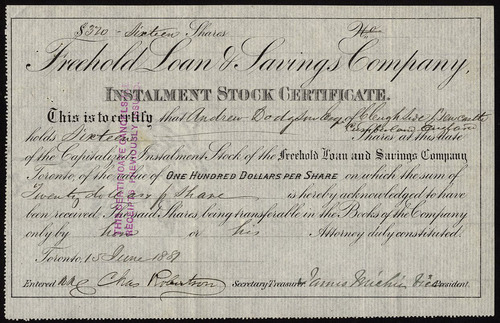 $320 - Sixteen Shares No
Freehold Loan & Savings Company,
INSTALMENT STOCK CERTIFICATE.
This is to certify that Andrew Dodgson Esq of Newcastle
Cumberland England
holds Sixteen Shares at this date
of the Capitalized Instalment Stock of the Freehold Loan and Savings Company
Toronto, of the value of ONE HUNDRED DOLLARS PER SHARE on which the sum of
Twenty dollars p Share is hereby acknowledged to have
been received. The said Shares being transferable in the Books of the Company
only by him or his Attorney duly constituted.
Toronto, 15 June 1881
Entered Chas Robertson Secretary Treasurer James Michie Vice President.
THIS CERTIFICATE CANCELS
RECEIPTS PREVIOUSLY ISSUED